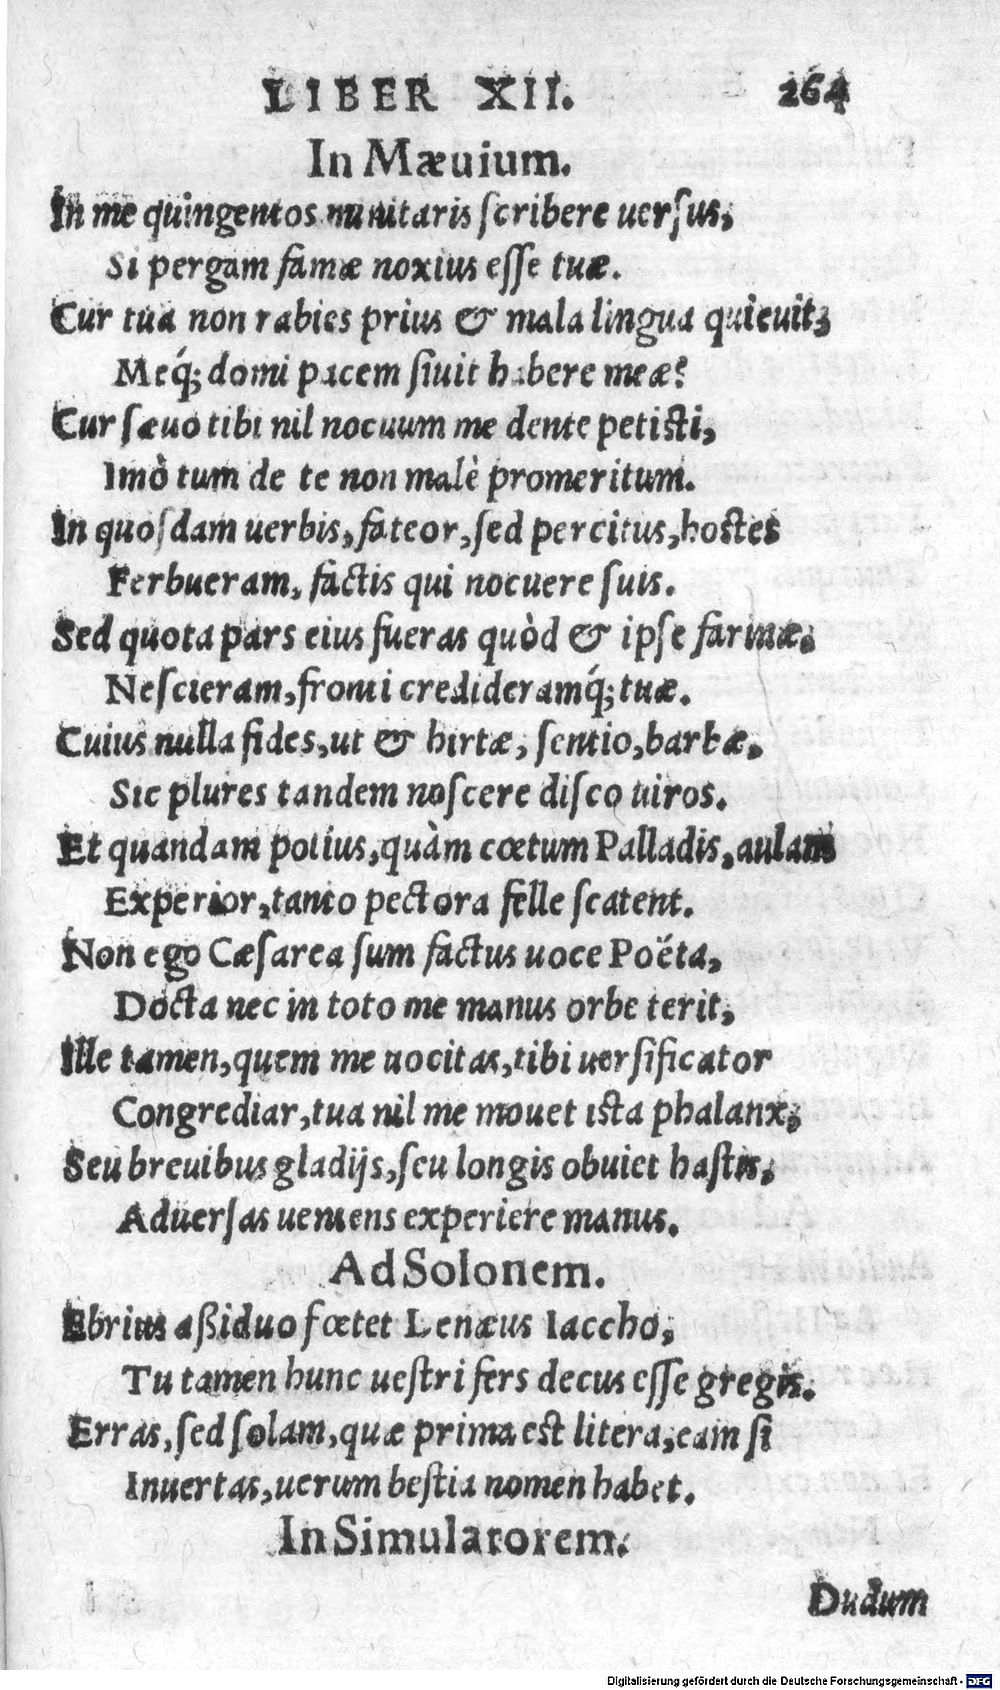 LIBER XII. 264
In Mæuium.
In me quingentos minitaris ſcribere uerſus,
Si pergam famæ noxius eſſe tuæ.
Cur tua non rabies prius & mala lingua quieuit,
Meq́; domi pacem ſiuit habere meæ?
Cur ſæuo tibi nil nocuum me dente petiſti,
Imò tum de te non malè promeritum.
In quoſdam uerbis, fateor, ſed percitus, hoſtes
Ferbueram, factis qui nocuere ſuis.
Sed quota pars eius fueras quòd & ipſe farinæ,
Neſcieram, fronti credideramq́; tuæ.
Cuius nulla fides, ut & hirtæ, ſentio, barbæ,
Sic plures tandem noſcere diſco uiros.
Et quandam potius, quàm cœtum Palladis, aulam
Experior, tanto pectora felle ſcatent.
Non ego Cæſarea ſum factus uoce Poëta,
Docta nec in toto me manus orbe terit,
Ille tamen, quem me uocitas, tibi uerſificator
Congrediar, tua nil me mouet iſta phalanx,
Seu breuibus gladijs, ſeu longis obuiet haſtis,
Aduerſas ueniens experiere manus.
Ad Solonem.
Ebrius aßiduo fœtet Lenæus Iaccho,
Tu tamen hunc ueſtri fers decus eſſe gregis.
Erras, ſed ſolam, quæ prima eſt litera, eam ſi
Inuertas, uerum beſtia nomen habet.
In Simulatorem.
Dudum
Digitalisierung gefördert durch die Deutsche Forschungsgemeinschaft - DFG